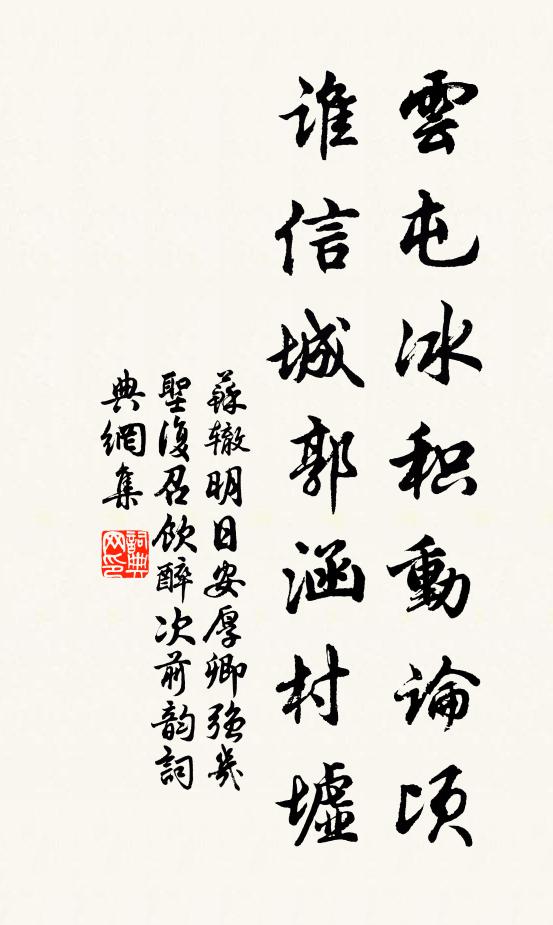 雲屯冰积動論顷
谁信城郭涵村墟
蘇辙明日安厚卿强幾
聖復召飲醉次前韵詞
典網集
詞典网印